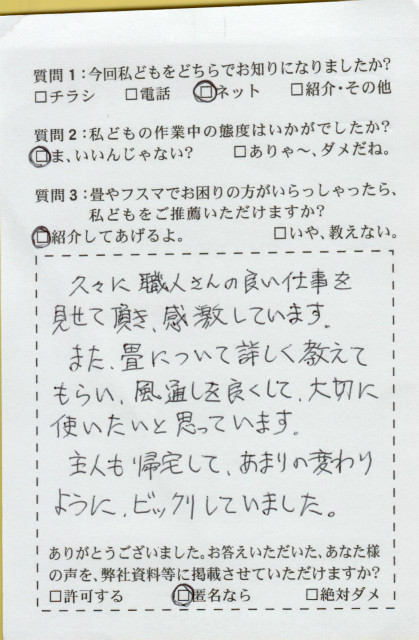 質問1:今回私どもをどちらでお知りになりましたか?
□チラシ □電話 □ネット □紹介・その他
質問2:私どもの作業中の態度はいかがでしたか?
□ま、いいんじゃない? □ありゃ〜、ダメだね。
質問3:畳やフスマでお困りの方がいらっしゃったら、
私どもをご推薦いただけますか?
□紹介してあげるよ。 □いや、教えない。
久々に職人さんの良い仕事を
見せて頂き、感激しています。
また、畳について詳しく教えて
もらい、風通しを良くして、大切に
使いたいと思っています。
主人も帰宅して、あまりの変わり
ように、ビックリしていました。
ありがとうございました。お答えいただいた、あなた様
の声を、弊社資料等に掲載させていただけますか?
□許可する □匿名なら □絶対ダメ